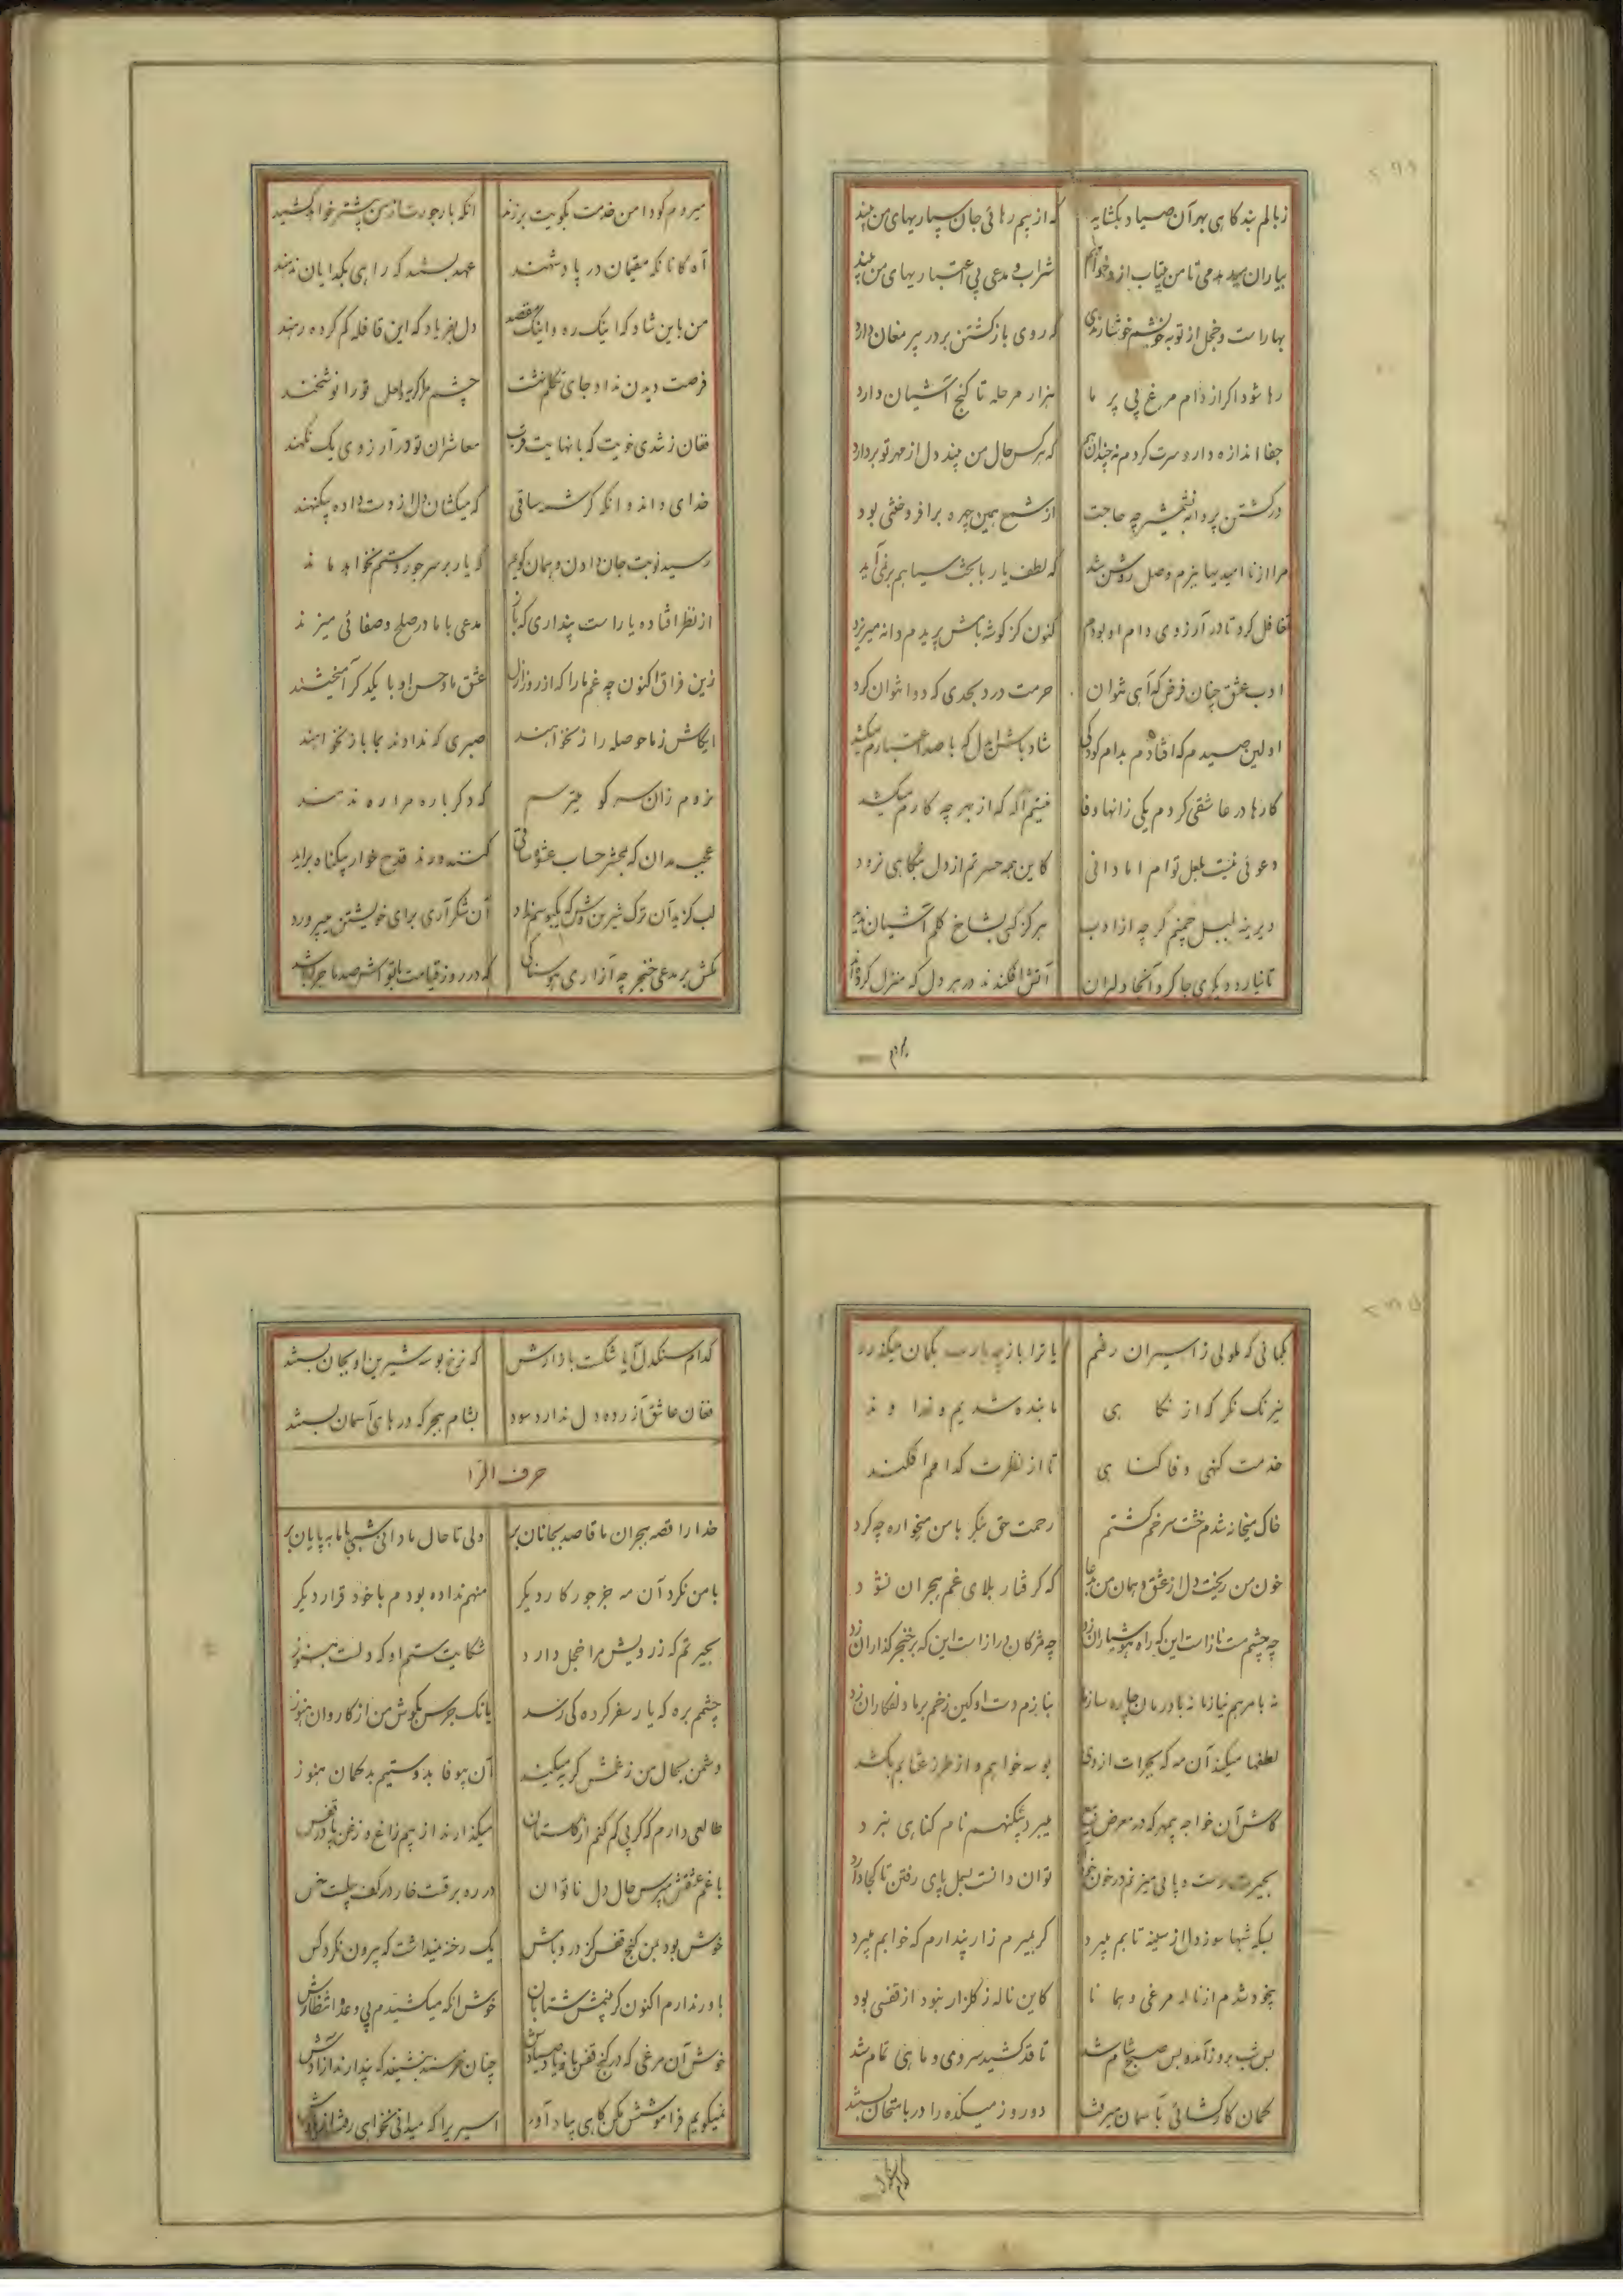 ز بالم بند کاهی بهر آن صیاد بگشاید که از بیم رهائی جان سپاریهای من بیند
شراب و مدعی بی اعتباریهای من بیند
که روی بازگشتن بر در پیر مغان دارد
رها شود اکر از دام مرغ بی پر ما هزار مرحله تا کنج آشیان دارد
که هر کس حال من بیند دل از مهر تو بردارد
در کشتن پروانه بشمشیر چه حاجت از شمع همین چهره برافروختنی بود
مرا از ناامیدیها بزم وصل روشن شد که لطف یار با بخت سیاهم برنمی‌آید
تغافل کرد تا در آرزوی دام او بودم کنون کز کوشه بامش پریدم دانه میریزد
ادب عشق چنان فرض که آهی نتوان حرمت درد بحدی که دوا نتوان کرد
اولین صیدم که افتادم بدام کودکی
کارها در عاشقی کردم یکی زانها وفا نیستم آکه که از بهر چه کارم میکشد
دعوئی نیست بلعل توام اما دانی کاین همه حسرتم از دل بنگاهی نرود
دیرینه بلبل چمنم کر چه از ادب هرکز کسی بشاخ کلم آشیان ندید
تا نیارد دیکری جا کرد آنجا دلبران آتش افکندند در هر دل که منزل کرده‌اند
میروم کو دامن خدمت بکویت برزند آنکه بار جورت از من بیشتر خواهد کشید
آه کانانکه مقیمان در پادشهند عهد بستند که راهی بکدایان ندهند
من باین شاد که اینک ره و اینک مقصد دل بفریاد که این قافله کم کرده رهند
فرصت دیدن نداد جای تکلم نشت
فغان ز تندی خویت که با نهایت قرب معاشران تو در آرزوی یک نکهند
خدای داند و آنکه کرشمه ساقی که میکشان دل از دست داده بیکنهند
رسید نوبت جان دادن و همان کویم که یار بر سر جور و ستم نخواهد ماند
از نظر افتاده یار است پنداری که باز مدعی با ما در صلح و صفائی میزند
زین فراق اکنون چه غم ما را که از روز ازل عشق ما و حسن او با یکدکر آمیختند
ایکاش ز ما حوصله را زنخواهند صبری که ندادند بما باز نخواهند
نروم زان سر کو میترسم که دکرباره مرا ره ندهند
عجب مدان که بمحشر حساب عشوه ساقی کشنده ورند قدح خوار بیکناه برآید
آن شکر آری برای خویشتن میپرورد
مکش بر مدعی خنجر چه آزاری هوسناکی که در روز قیامت با تو اش صد ماجرا باشد
بکمانی که ملولی ز اسیران رفتم
نیرنک نکر که از نکاهی ما بنده شدیم و خداوند
خدمت کنهی وفا کناهی تا از نظرت کدامم افکند
خاک میخانه شدم خشت سر خم کشتم رحمت حق بنکر با من میخواره چه کرد
خون من ریخت دل از عشق و همان من بدعا که کرفتار بلای غم هجران نشود
چه چشم مست ناز است این که راه هوشیاران زد چه مژکان دراز است این که بر خنجر کذاران زد
نه با مرهم نیاز ما نه با درمان چاره‌سازها بنازم دست او کاین زخم بر ما دلفکاران زد
لطفها میکند آن مه که بجرات از وی بوسه خواهم و از طرز عتابم بکشد
کاش آن خواجه بیمهر که در معرض بیع میبرد بیکنهم نام کناهی نبرد
دست و پائی میزنم در خون خود توان دانست بسمل پای رفتن تا کجا دارد
بسکه شبها سوز دل از سینه تابم میبرد کر بمیرم زار پندارم که خوابم میبرد
بیخود شدم از ناله مرغی و همانا کاین ناله ز کلزار نبود از قفسی بود
بس شب بروز آمد و بس صبح شام شد تا قد کشید سروی و ماهی تمام شد
کمان کارکشائی بآسمان میرفت دو روز میکده را در بامتحان بستند
کدام سنکدل آیا شکست بازارش که نرخ بوسه شیرین او بجان بستند
فغان عاشق آزرده دل ندارد سود بشام هجر که درهای آسمان بستند
حرف الرا
خدا را قصه هجران ما قاصد بجانان بر ولی تا حال ما دانی شبی با ما به پایان بر
با من نکرد آن مه جز جور کار دیکر منهم نداده بودم با خود قرار دیکر
بحیرتم که ز رویش مرا خجل دارد شکایت ستم او که در دلست هنوز
چشمم بره که یار سفر کرده کی رسد بانک جرس بکوش من از کاروان هنوز
دشمن بحال من ز غمش کریه میکند آن بیوفا بدوستیم بدکمان هنوز
طالعی دارم که کر پی کم کنم از کلستان میکذارند از بیم زاغ و زغن پا در قفس
با غم عشقش مپرس حال دل ناتوان در ره برقست خار در کف سیلست خس
خوش بود بمن کنج قفس کز در و بامش یک رخنه نینداشت که بیرون نکرد کس
باور ندارم اکنون کر بینمش شتابان خوش آنکه میکشیدم بی وعده انتظارش
خوش آن مرغی که در کنج قفس با یاد صیادش چنان خرسند بنشیند که پندارند آزادش
نمیکویم فراموشش مکن کاهی بیاد آور اسیری را که میدانی نخواهی رفت از یادش